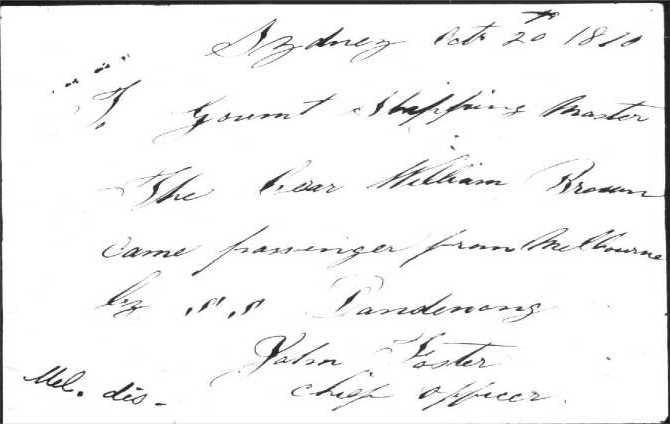 Sydney Oct 20th 1870
To Govmt Shipping Master
The bear William Brown
came passenger from Melbourne
by S.S Dandenong
John Foster
Mel. dis- chief officer.